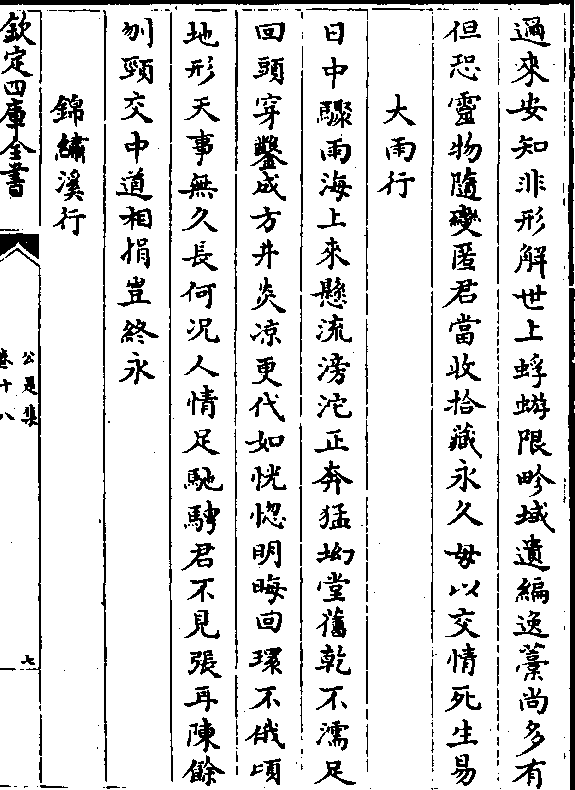 過來安知非形解世上蜉蝣限畛域遺編逸藁尚多有
但恐靈物隨變匿君當收拾藏永久毋以交情死生易
大雨行
日中驟雨海上來懸流滂沱正奔猛坳堂舊乾不濡足
回頭穿鑿成方井炎凉更代如恍惚明晦回環不俄頃
地形天事無久長何况人情足馳騁君不見張耳陳餘
刎頸交中道相捐豈終永
錦繡溪行
欽定四庫全書
公是集
卷十八
七